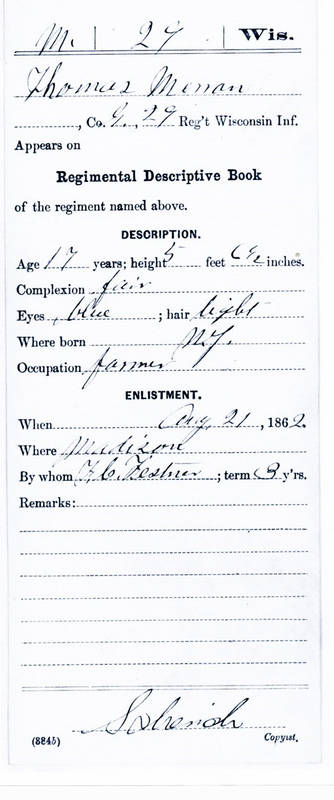 M. | 29 | Wis.
Thomas Monan
, Co. G, 29 Reg't Wisconsin Inf.
Appears on
Regimental Descriptive Book
of the regiment named above.
DESCRIPTION.
Age 17 years; height 5 feet 6½ inches.
Complexion fair
Eyes blue ; hair light
Where born N.Y.
Occupation farmer
ENLISTMENT.
When Aug. 21 , 1862.
Where Madison
By whom F. C. Festner ; term 3 y'rs.
Remarks:
(3845) Copyist.